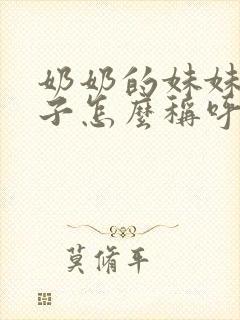 奶奶的妹妹
子怎麼稱呼
莫脩平